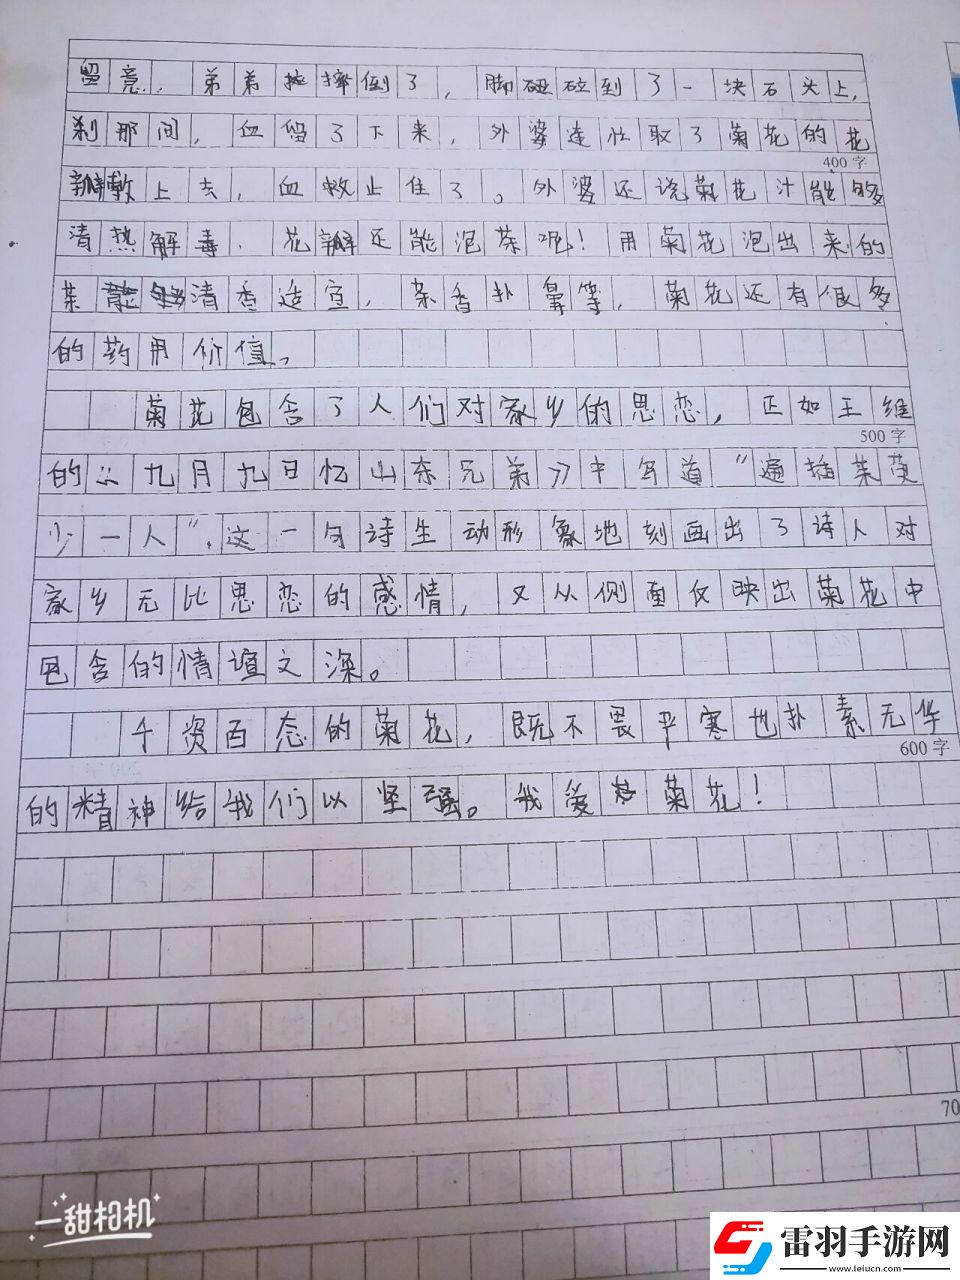 留意，弟弟摔倒了，脚碰到了一块石头上，
刹那间，血留了下来，外婆连忙取了菊花的花
400字
瓣敷上去，血敉止住了。外婆还说菊花汁能够
清热解毒．花瓣还能泡茶呢！用菊花泡出来的
茶清香适宜，茶香扑鼻等，菊花还有很多
的药用价值。
菊花包含了人们对家乡的思恋，正如王维
500字
的《九月九日忆山东兄弟》中写道“遍插茱萸
少一人”，这一句诗生动形象地刻画出了诗人对
家乡无比思恋的感情，又从侧面反映出菊花中
包含的情谊文深。
千资百态的菊花，既不畏严寒也扑素无华
600字
的精神给我们以坚强。我爱菊花！
70
一甜相机
雷羽手游网
www.leiucn.com